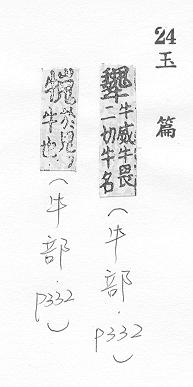 24
玉篇
犩
牛威牛畏
二切牛名
(牛部.p332)
牛也
(牛部.p332)